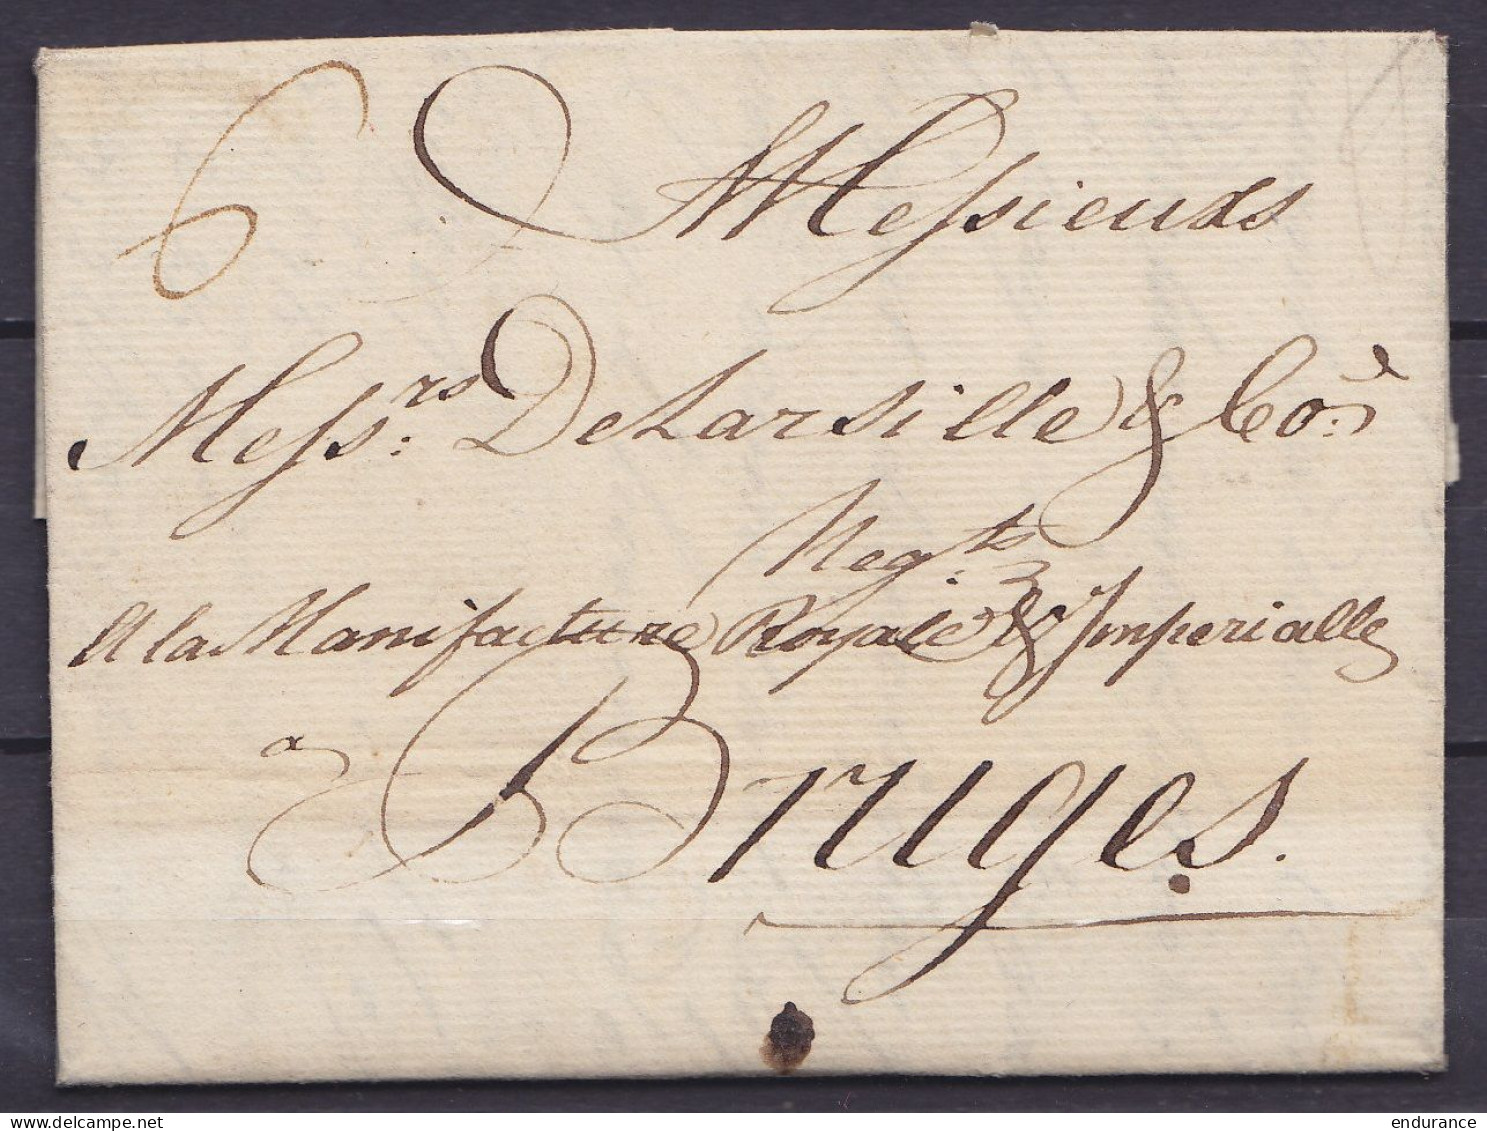 6
Messieurs
Messrs: DeLarsille & Co:
Negts
A la Manifacture Royale & Imperialle
a
Bruges.
endurance